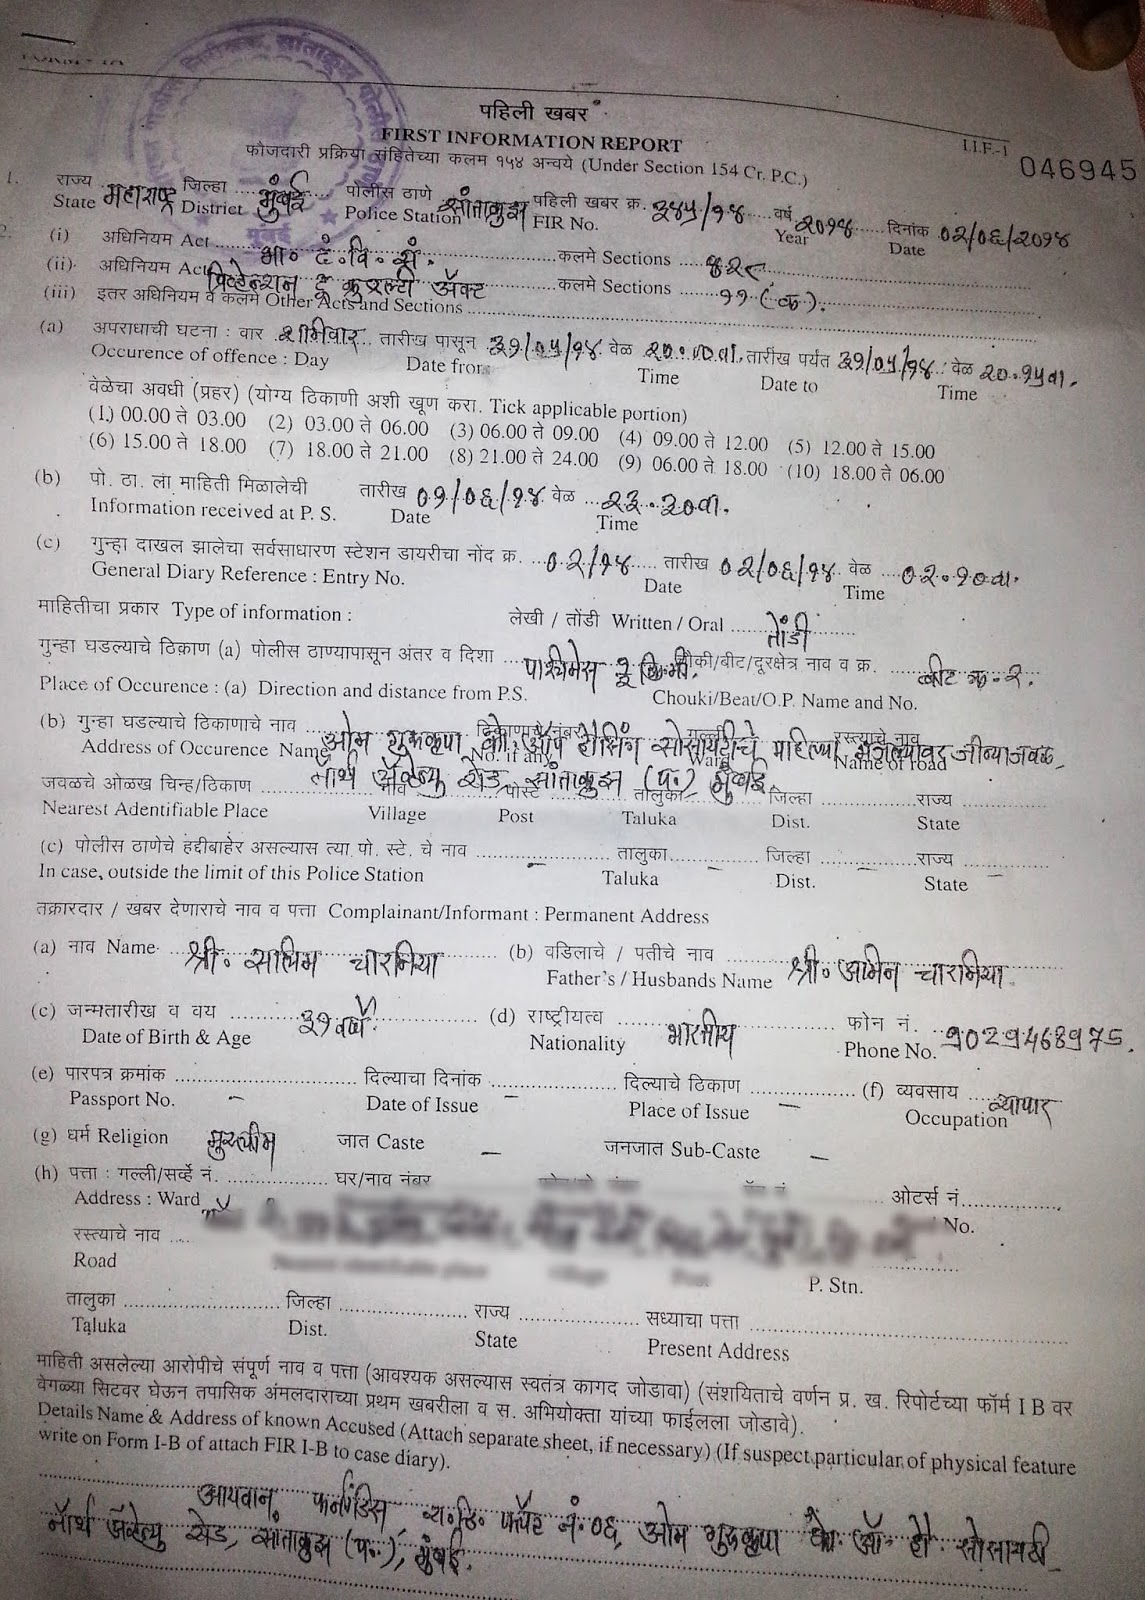 पहिली खबर
FIRST INFORMATION REPORT
I.I.F.-I
046945
फौजदारी प्रक्रिया संहितेच्या कलम १५४ अन्वये (Under Section 154 Cr. P.C.)
1. राज्य महाराष्ट्र जिल्हा मुंबई पोलीस ठाणे सांताक्रुझ पहिली खबर क्र. ३४५/१४ वर्ष २०१४ दिनांक ०२/०६/२०१४
State District Police Station FIR No. Year Date
2. (i) अधिनियम Act भा॰ दं. वि. सं. कलमे Sections ४२९
(ii) अधिनियम Act प्रिव्हेन्शन टू क्रुएल्टी ॲक्ट कलमे Sections ११ (क).
(iii) इतर अधिनियम व कलमे Other Acts and Sections
(a) अपराधाची घटना : वार शनिवार तारीख पासून ३१/०५/१४ वेळ २०.००वा. तारीख पर्यंत ३१/०५/१४ वेळ २०.१५वा.
Occurence of offence : Day Date from Time Date to Time
वेळेचा अवधी (प्रहर) (योग्य ठिकाणी अशी खूण करा. Tick applicable portion)
(1) 00.00 ते 03.00 (2) 03.00 ते 06.00 (3) 06.00 ते 09.00 (4) 09.00 ते 12.00 (5) 12.00 ते 15.00
(6) 15.00 ते 18.00 (7) 18.00 ते 21.00 (8) 21.00 ते 24.00 (9) 06.00 ते 18.00 (10) 18.00 ते 06.00
(b) पो. ठा. ला माहिती मिळालेची तारीख ०१/०६/१४ वेळ २३.२०वा.
Information received at P. S. Date Time
(c) गुन्हा दाखल झालेचा सर्वसाधारण स्टेशन डायरीचा नोंद क्र. ०२/१४ तारीख ०२/०६/१४ वेळ ०२.१०वा.
General Diary Reference : Entry No. Date Time
माहितीचा प्रकार Type of information : लेखी / तोंडी Written / Oral तोंडी
गुन्हा घडल्याचे ठिकाण (a) पोलीस ठाण्यापासून अंतर व दिशा पश्चिमेस कि.मी. चौकी/बीट/दूरक्षेत्र नाव व क्र. बीट क्र. २.
Place of Occurence : (a) Direction and distance from P.S. Chouki/Beat/O.P. Name and No.
(b) गुन्हा घडल्याचे ठिकाणाचे नाव ठिकाणाचे नंबर गल्ली रस्त्याचे नाव
ओम गुरुकृपा को. ऑप हौसिंग सोसायटीचे पहिल्या मजल्यावर जीन्याजवळ,
Address of Occurence Name No. if any Ward Name of road
नॉर्थ ॲव्हेन्यु रोड, सांताक्रुझ (प.) मुंबई.
जवळचे ओळख चिन्ह/ठिकाण गाव पोस्ट तालुका जिल्हा राज्य
Nearest Adentifiable Place Village Post Taluka Dist. State
(c) पोलीस ठाणेचे हद्दीबाहेर असल्यास त्या पो. स्टे. चे नाव – तालुका – जिल्हा – राज्य –
In case, outside the limit of this Police Station Taluka Dist. State
तक्रारदार / खबर देणाराचे नाव व पत्ता Complainant/Informant : Permanent Address
(a) नाव Name श्री. सलिम चारनिया (b) वडिलाचे / पतीचे नाव श्री. अमिन चारनिया
Father's / Husbands Name
(c) जन्मतारीख व वय ३१ वर्षे (d) राष्ट्रीयत्व भारतीय फोन नं. 9029468975.
Date of Birth & Age Nationality Phone No.
(e) पारपत्र क्रमांक दिल्याचा दिनांक दिल्याचे ठिकाण (f) व्यवसाय व्यापार
Passport No. – Date of Issue – Place of Issue – Occupation
(g) धर्म Religion मुस्लीम जात Caste – जनजात Sub-Caste –
(h) पत्ता : गल्ली/सर्व्हे नं. घर/नाव नंबर ओटर्स नं.
Address : Ward No.
रस्त्याचे नाव
Road P. Stn.
तालुका जिल्हा राज्य सध्याचा पत्ता
Taluka Dist. State Present Address
माहिती असलेल्या आरोपीचे संपूर्ण नाव व पत्ता (आवश्यक असल्यास स्वतंत्र कागद जोडावा) (संशयिताचे वर्णन प्र. ख. रिपोर्टच्या फॉर्म I B वर
वेगळ्या सिटवर घेऊन तपासिक अंमलदाराच्या प्रथम खबरीला व स. अभियोक्ता यांच्या फाईलला जोडावे).
Details Name & Address of known Accused (Attach separate sheet, if necessary) (If suspect particular of physical feature
write on Form I-B of attach FIR I-B to case diary).
आयवान फर्नांडिस रा.ठि. फ्लॅट नं. ०६, ओम गुरुकृपा को. ऑ. हौ. सोसायटी
नॉर्थ ॲव्हेन्यु रोड, सांताक्रुझ (प.), मुंबई.